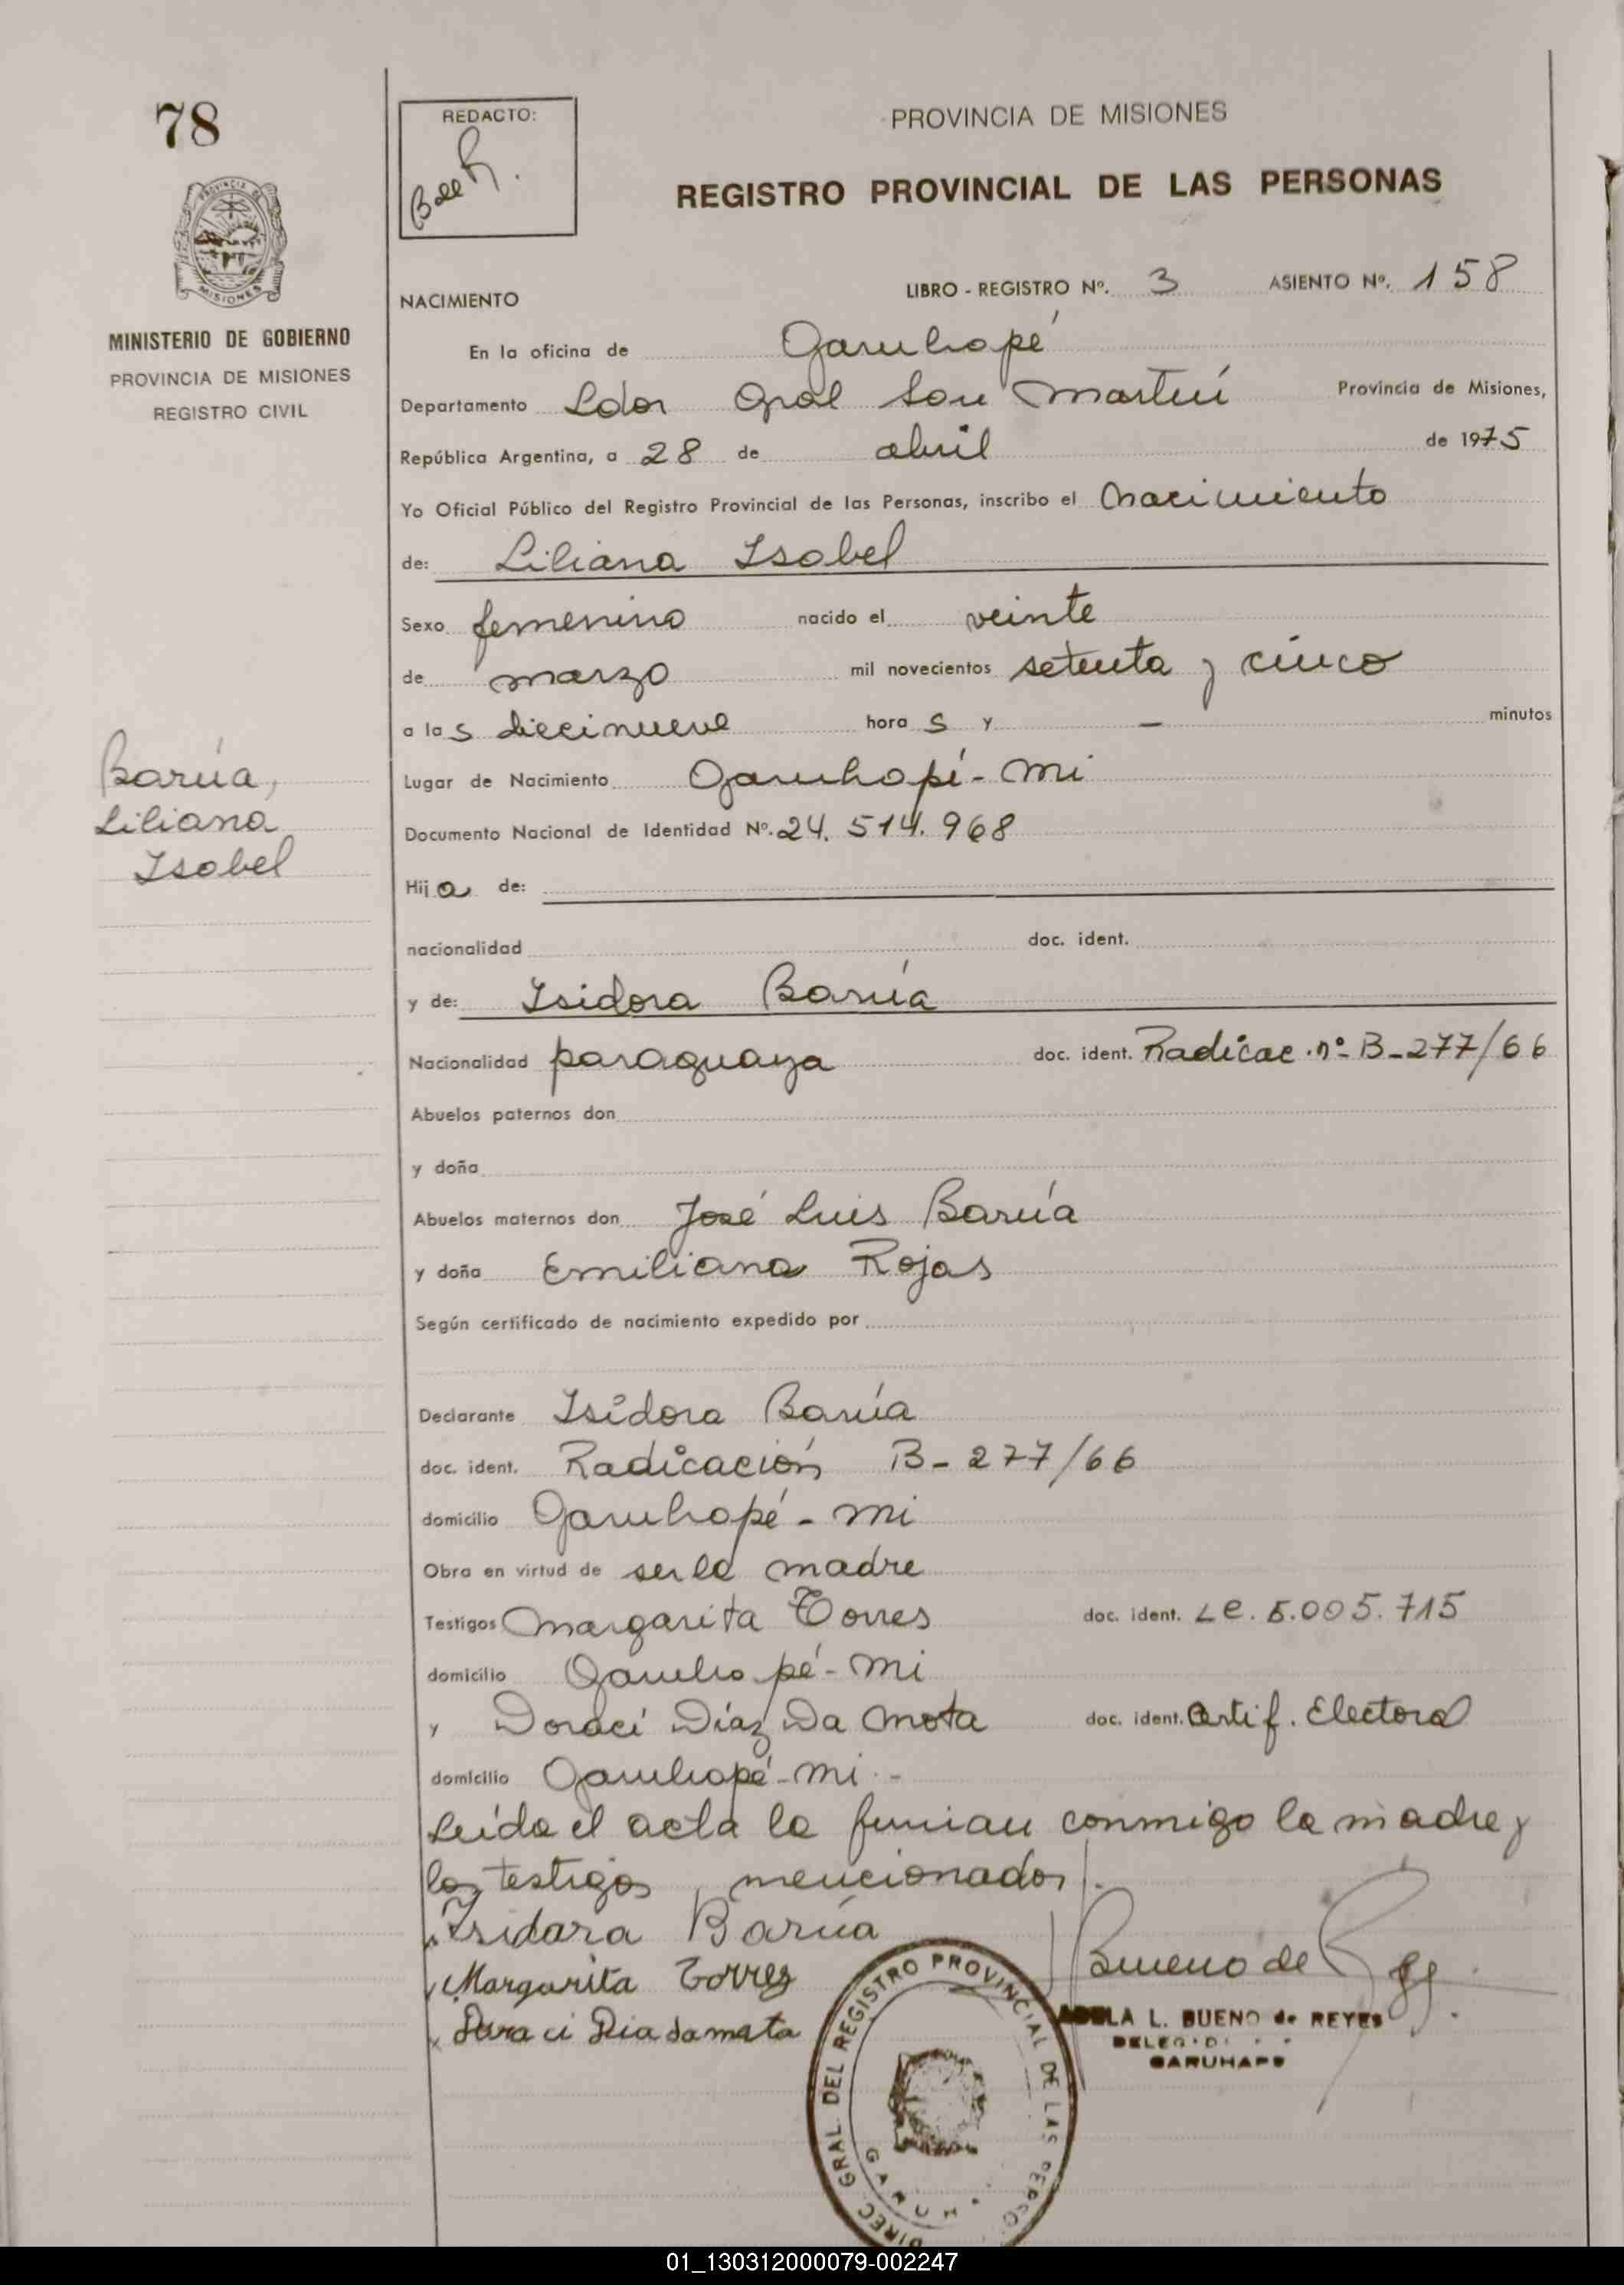 78
REDACTO:
PROVINCIA DE MISIONES
REGISTRO PROVINCIAL DE LAS PERSONAS
PROVINCIA DE
MISIONES
MINISTERIO DE GOBIERNO
PROVINCIA DE MISIONES
REGISTRO CIVIL
NACIMIENTO LIBRO - REGISTRO Nº. 3 ASIENTO Nº. 158
En la oficina de Garuhapé
Departamento Ldor Gral San Martín Provincia de Misiones,
República Argentina, a 28 de abril de 1975
Yo Oficial Público del Registro Provincial de las Personas, inscribo el nacimiento
de: Liliana Isabel
Sexo femenino nacido el veinte
de marzo mil novecientos setenta y cinco
a las diecinueve hora s y — minutos
Barúa,
Liliana
Isabel
Lugar de Nacimiento Garuhapé - Mi
Documento Nacional de Identidad Nº. 24.514.968
Hija de:
nacionalidad doc. ident.
y de: Isidora Barúa
Nacionalidad paraguaya doc. ident. Radicac. nº B-277/66
Abuelos paternos don
y doña
Abuelos maternos don José Luis Barúa
y doña Emiliana Rojas
Según certificado de nacimiento expedido por
Declarante Isidora Barúa
doc. ident. Radicación B-277/66
domicilio Garuhapé - Mi
Obra en virtud de ser la madre
Testigos Margarita Torres doc. ident. L.C. 5.005.715
domicilio Garuhapé - Mi
y Doraci Díaz Da Mota doc. ident. Certif. Electoral
domicilio Garuhapé - Mi. -
Leída el acta la firman conmigo la madre y
los testigos mencionados.
Isidora Barúa
Margarita Torres
Doraci Dia damata
Bueno de
ADELA L. BUENO de REYES
GARUHAPE
DIREC. GRAL. DEL REGISTRO PROVINCIAL DE LAS
01_130312000079-002247